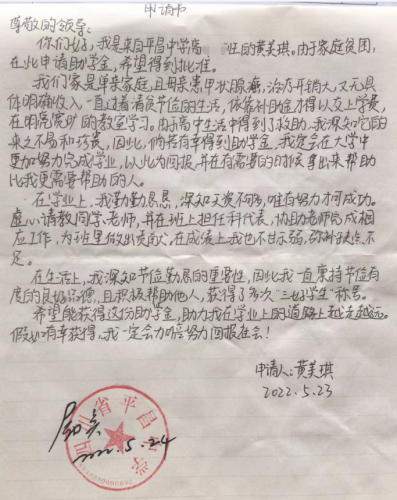 申请书
尊敬的领导:
你们好,我是来自平昌中学高 班的黄美琪。由于家庭贫困,
在此申请助学金,希望得到批准。
我们家是单亲家庭,且母亲患甲状腺瘤,治疗开销大,又无具
体明确收入,一直过着清贫节俭的生活,依靠补助金才得以交上学费,
在明亮宽敞的教室学习。由于高中生活中得到了救助,我深知它的
来之不易和珍贵,因此,倘若有幸得到助学金,我定会在大学中
更加努力完成学业,以此为回报,并在有需要的时候拿出来帮助
比我更需要帮助的人。
在学业上,我勤勤恳恳,深知天资不够,唯有努力才可成功。
虚心请教同学、老师,并在班上担任科代表,协助老师完成相
应工作,为班里做出贡献,在成绩上我也不甘示弱,弥补缺点不
足。
在生活上,我深知节俭勤恳的重要性,因此我一直秉持节俭有
度的良好品德,且积极帮助他人,获得了多次“三好学生”称号。
希望能获得这份助学金,助力我在学业上的道路上越走越远。
假如有幸获得,我一定会加倍努力回报社会!
申请人:黄美琪
2022.5.23
四川省平昌中学
2022.5.24